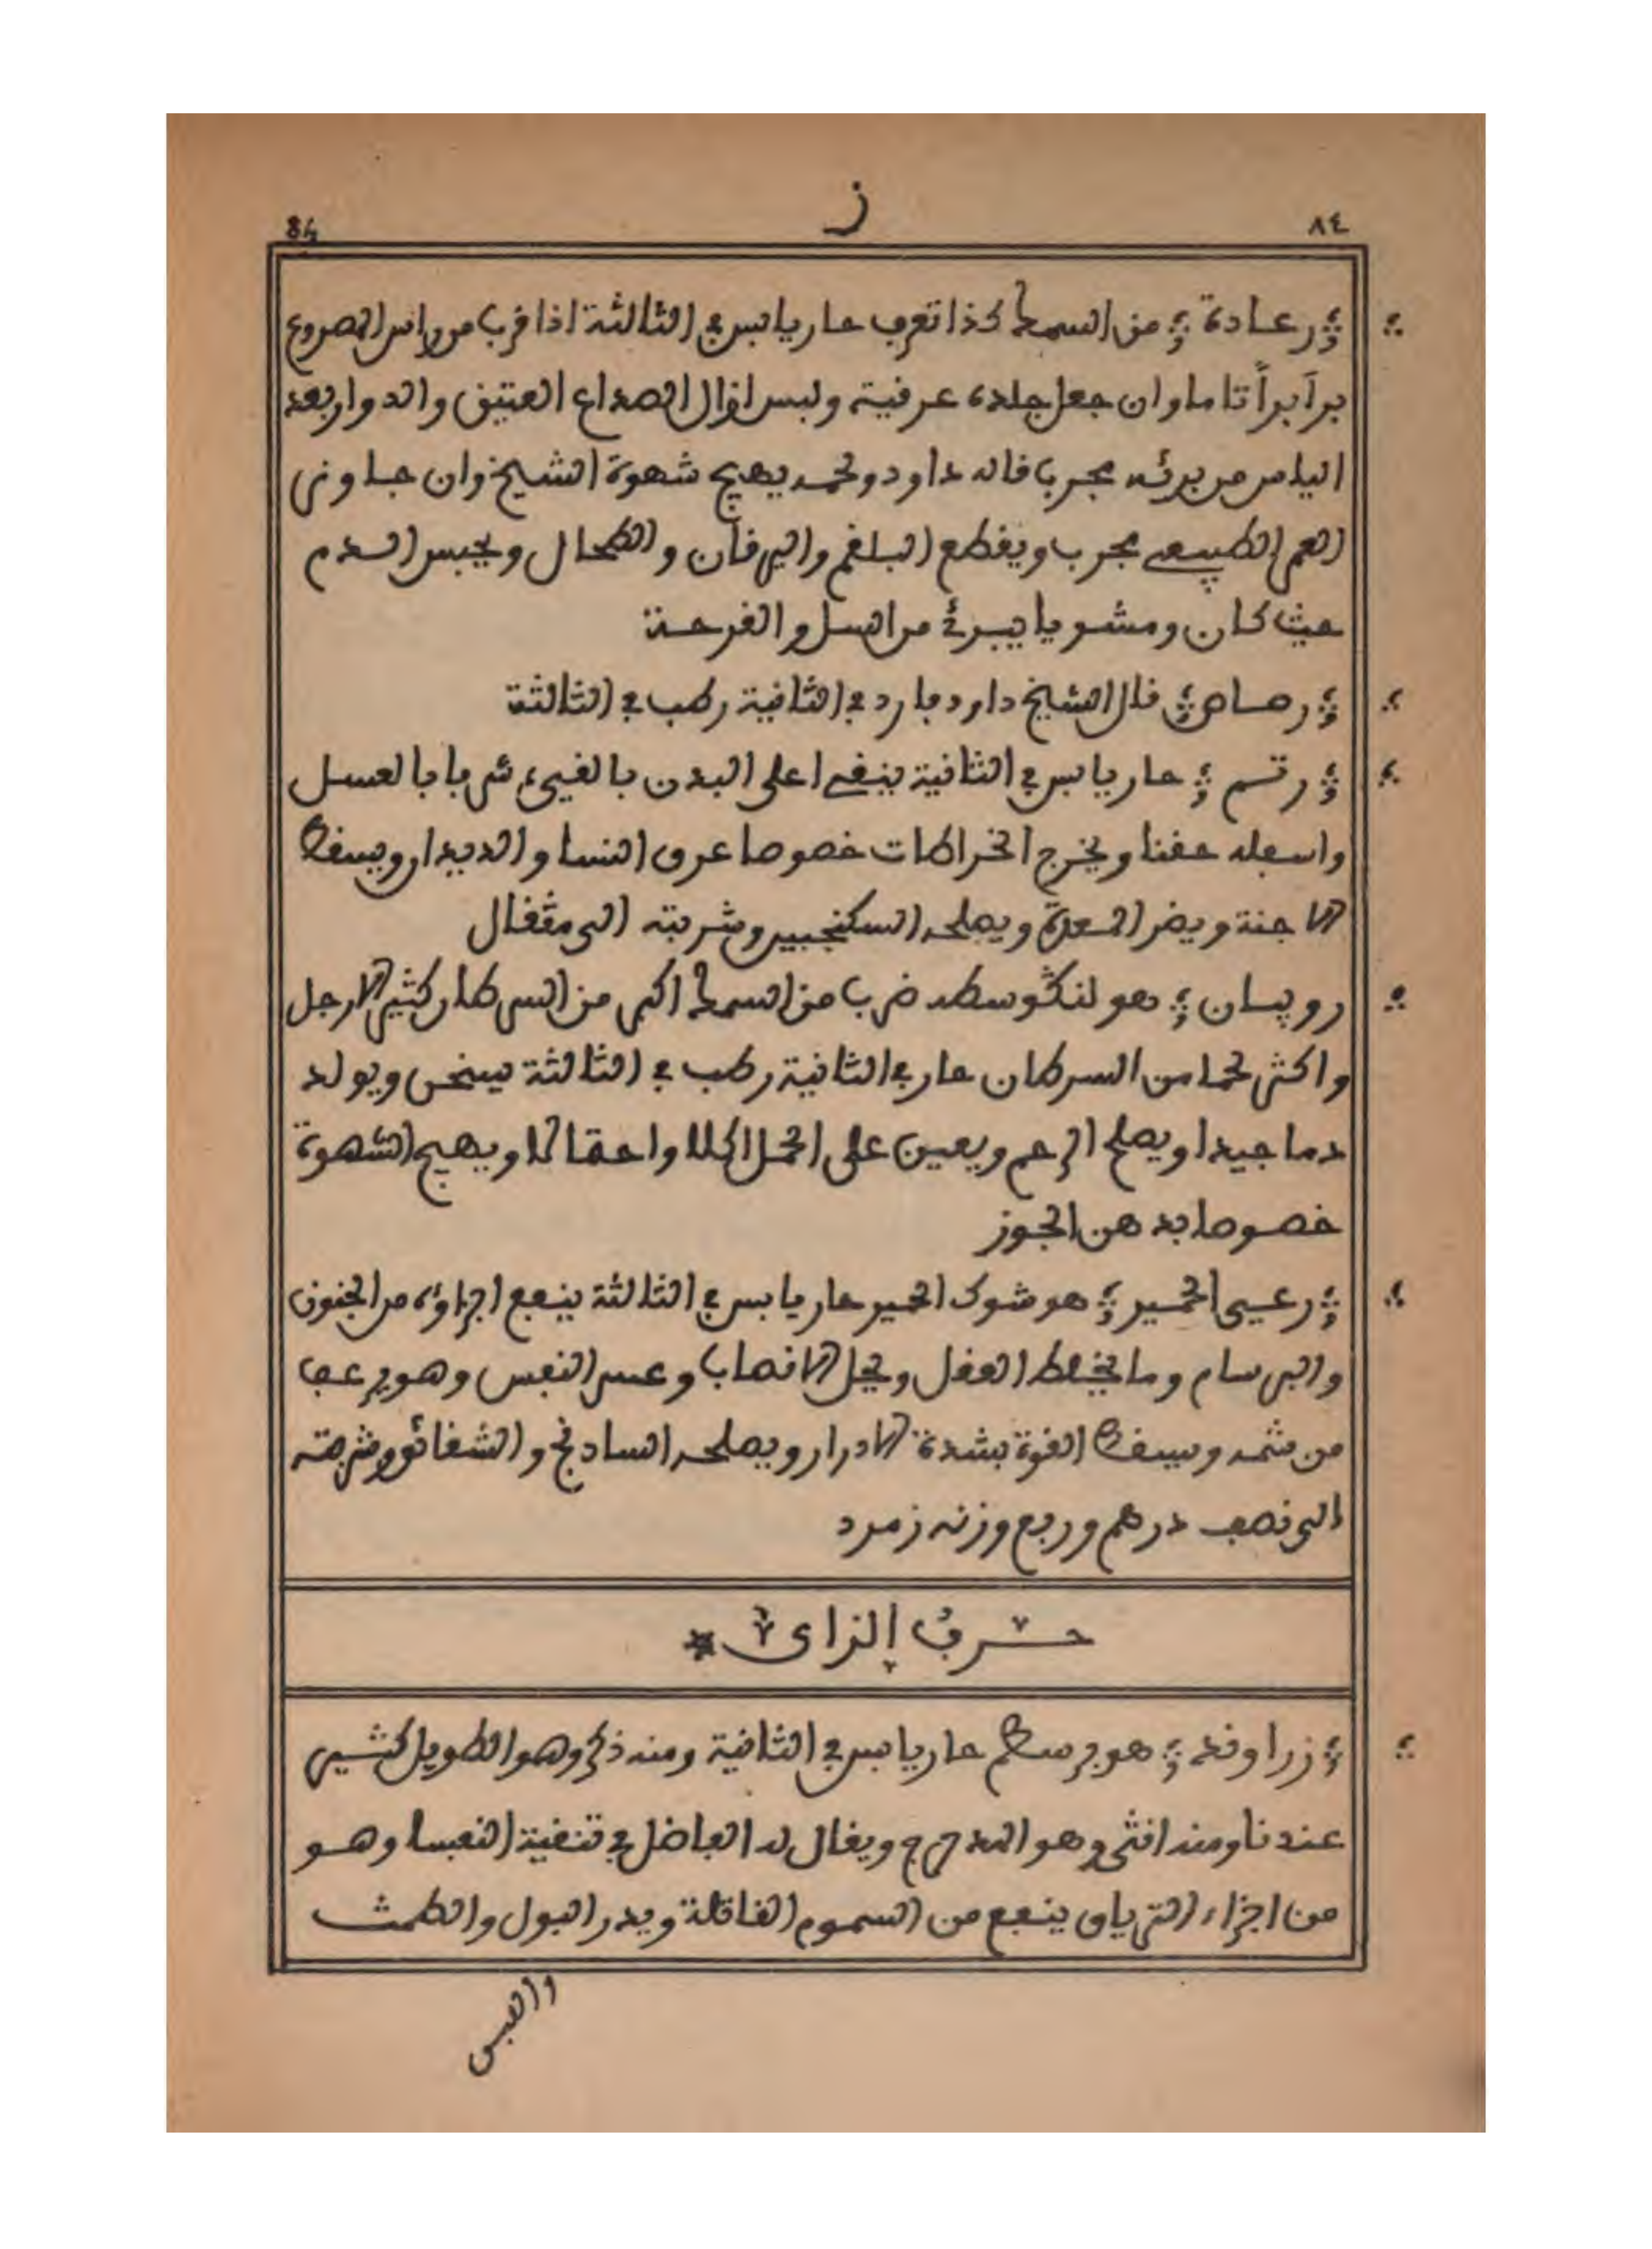 ٨٤ ز 84
رعادة من السمك كذا تعرف حار يابس في الثالثة اذا قرب من راس المصروع
برأ برأً تاما وان جعل جلده عرقية ولبس ازال الصداع العتيق والدوار بعد
الياس من برئه مجرب قاله داود ولحمه يهيج شهوة الشيخ وان جاوز
العمر الطبيعي مجرب ويقطع البلغم واليرقان والطحال ويحبس الدم
حيث كان ومشويا يبرئ من السل والقرحة
رصاص قال الشيخ داود بارد في الثانية رطب في الثالثة
رتم حار يابس في الثانية ينقي اعلى البدن بالقيء شربا بالعسل
واسفله حقنا ويخرج الخراطات خصوصا عرق النسا والديدان ويسقط
الاجنة ويضر المعدة ويصلحه السكنجبين وشربته الى مثقال
روبيان هو لنكوسطه ضرب من السمك اكبر من السرطان كثير الارجل
واكثر لحما من السرطان حار في الثانية رطب في الثالثة يسخن ويولد
دما جيدا ويصلح الرحم ويعين على الحمل اكلا واحتمالا ويهيج الشهوة
خصوصا بدهن الجوز
رعي الحمير هو شوك الحمير حار يابس في الثالثة ينفع اجزاؤه من الجنون
والبرسام وما يخلط العقل ويحل الانصاب وعسر النفس وهو يرعف
من شمه ويسقط القوة بشدة الادرار ويصلحه السادنج والشقائق وشربته
الى نصف درهم وربع وزنه زمرد
حرف الزاي
زراوند هو برسطم حار يابس في الثانية ومنه ذكر وهو الطويل كثير
عندنا ومنه انثى وهو المدحرج ويقال له الفاضل في تنقية النفسا وهو
من اجزاء الترياق ينفع من السموم القاتلة ويدر البول والطمث